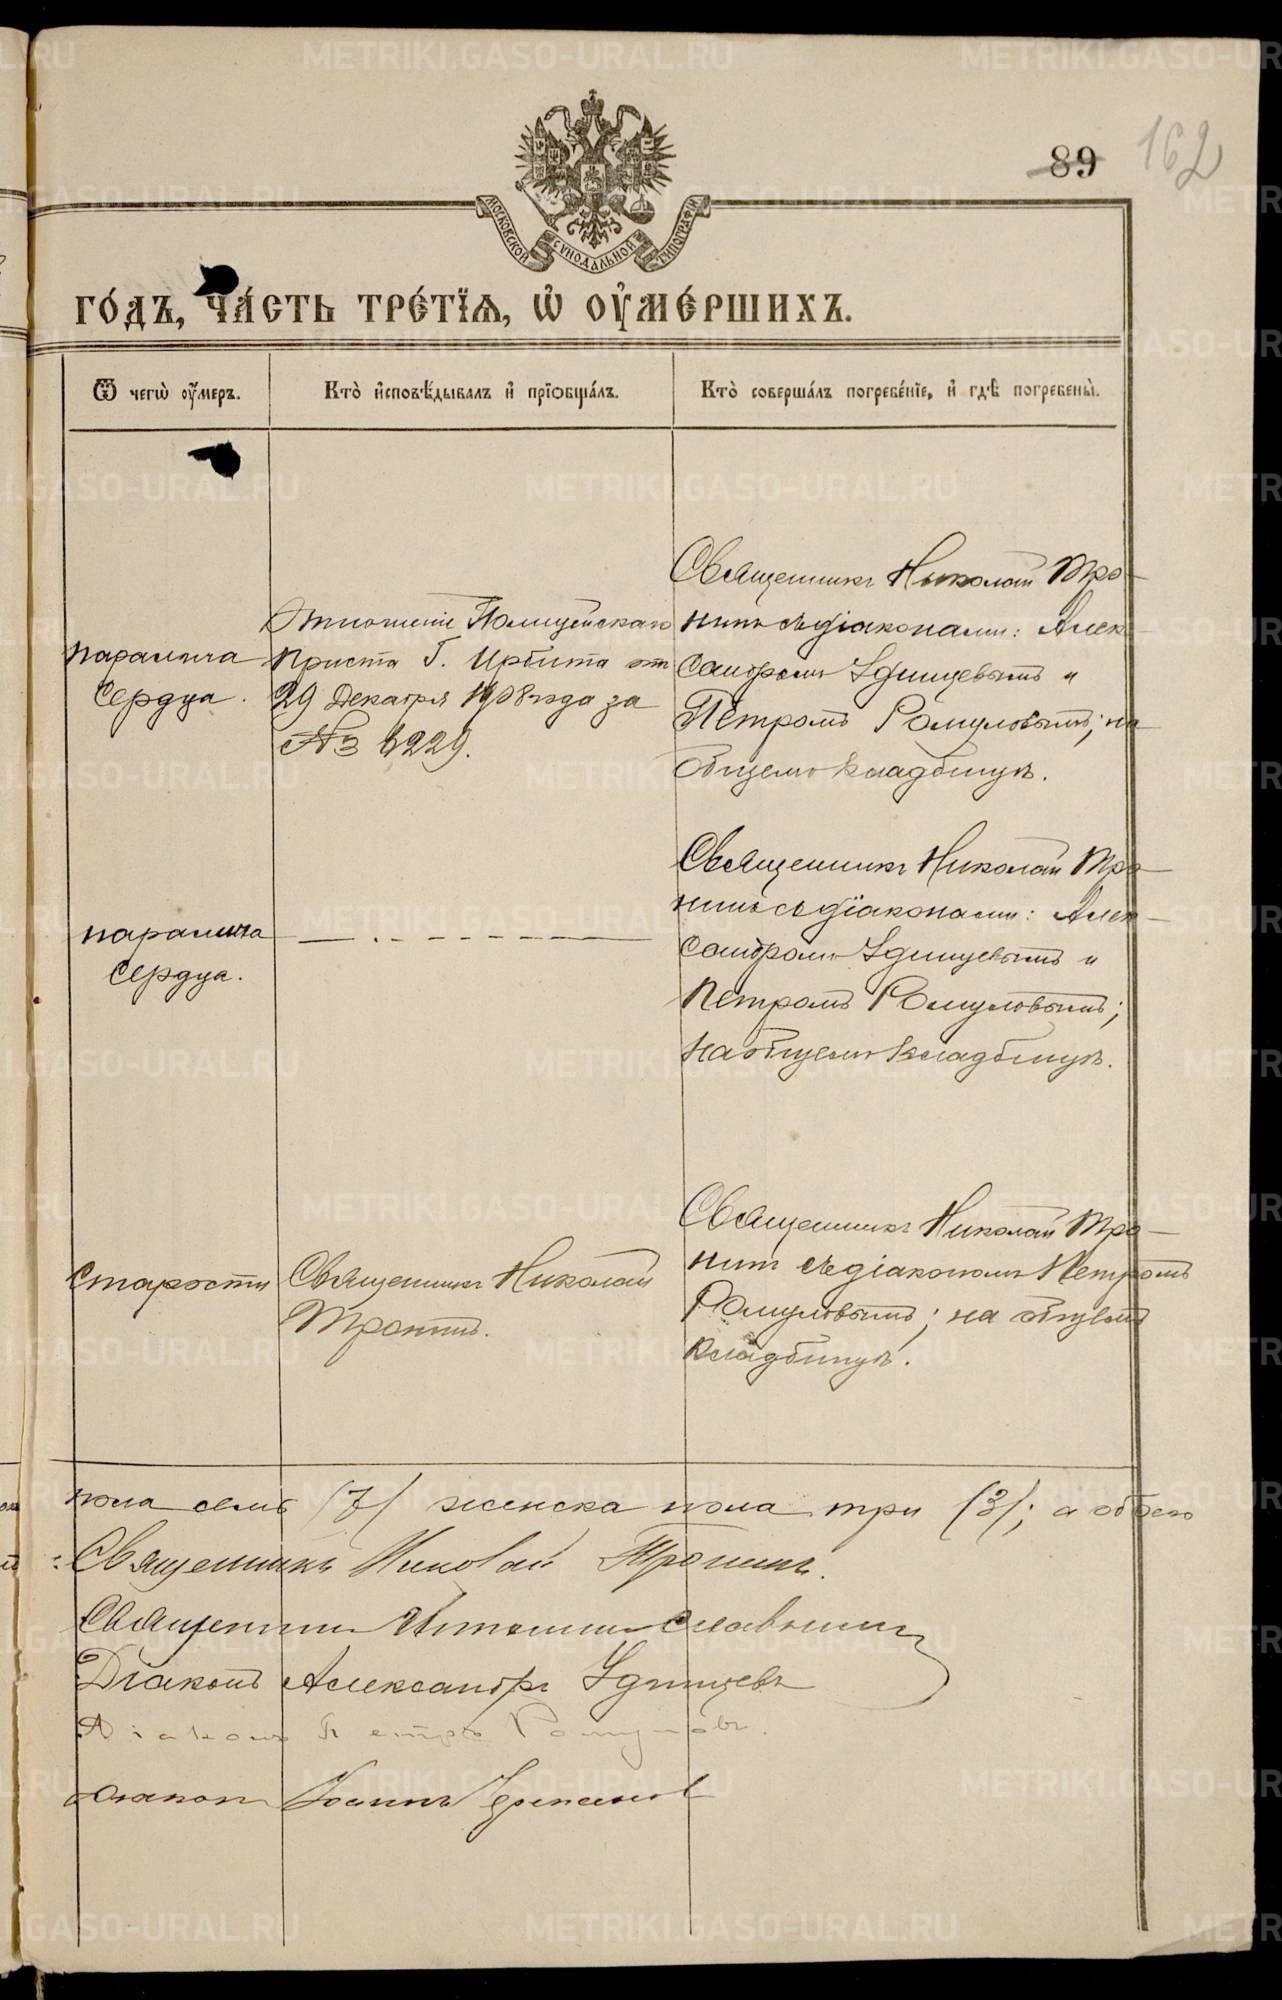 89
162
МОСКОВСКОЙ СѴНОДАЛЬНОЙ ТИПОГРАФІИ
ГО́ДЪ, ЧА́СТЬ ТРЕ́ТЇѦ, Ѡ҆ ОУ҆МЕ́РШИХЪ.
Ѿ чегѡ̀ оу҆́меръ.
Кто̀ и҆сповѣ́дывалъ и҆ прїѻбща́лъ.
Кто̀ соверша́лъ погребе́нїе, и҆ гдѣ̀ погребены̀.
паралича
сердца.
Отношеніе Полицейскаго
Приста Г. Ирбита от
29 Декабря 1908 года за
№ 6229.
Священникъ Николай Тро-
нинъ съ діаконами: Алек-
сандромъ Удинцевымъ и
Петромъ Ромуловымъ; на
общемъ кладбищѣ.
паралича
сердца.
Священникъ Николай Тро-
нинъ съ діаконами: Алек-
сандромъ Удинцевымъ и
Петромъ Ромуловымъ;
на общемъ кладбищѣ.
старости
Священникъ Николай
Тронинъ.
Священникъ Николай Тро-
нинъ съ діакономъ Петромъ
Ромуловымъ; на общемъ
кладбищѣ.
пола семь (7) женска пола три (3); а обоего
Священникъ Николай Тронинъ.
Священникъ Славнинъ
Діаконъ Александръ Удинцевъ
Діаконъ Петръ Ромуловъ.
Діаконъ Іоаннъ
METRIKI.GASO-URAL.RU